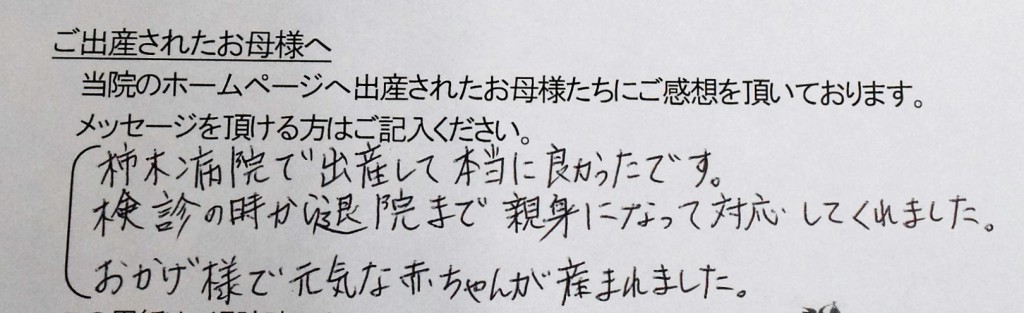 ご出産されたお母様へ
当院のホームページへ出産されたお母様たちにご感想を頂いております。
メッセージを頂ける方はご記入ください。
柿木病院で出産して本当に良かったです。
検診の時から退院まで親身になって対応してくれました。
おかげ様で元気な赤ちゃんが産まれました。